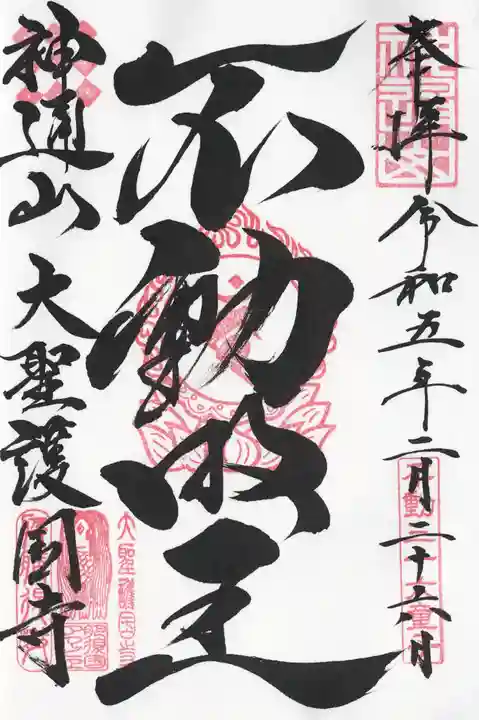 奉拝 令和五年二月二十六日
不動明王
神通山 大聖護国寺
大聖護国寺